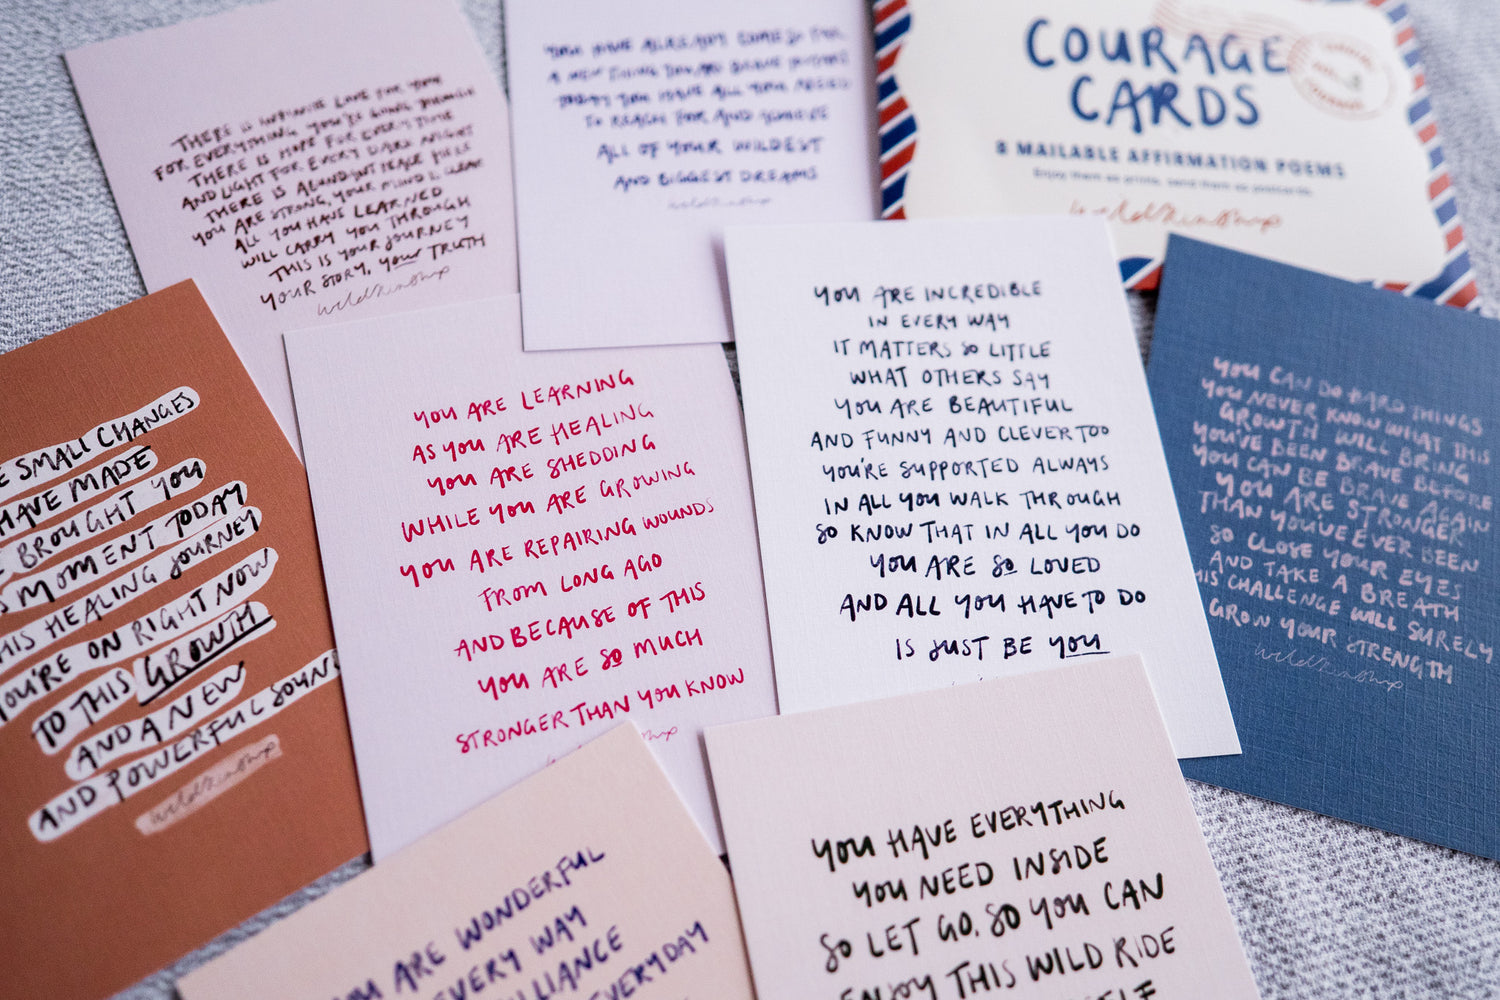 THERE IS INFINITE LOVE FOR YOU
FOR EVERYTHING YOU'RE GOING THROUGH
THERE IS HOPE FOR EVERY TIME
AND LIGHT FOR EVERY DARK NIGHT
THERE IS ABUNDANT PEACE HERE
YOU ARE STRONG, YOUR MIND IS CLEAR
ALL YOU HAVE LEARNED
WILL CARRY YOU THROUGH
THIS IS YOUR JOURNEY
YOUR STORY, YOUR TRUTH
wildkinship
YOU HAVE ALREADY COME SO FAR
A NEW THING YOU ARE BRAVE
TODAY YOU HAVE ALL YOU NEED
TO REACH FOR AND ACHIEVE
ALL OF YOUR WILDEST
AND BIGGEST DREAMS
wildkinship
COURAGE
CARDS
8 MAILABLE AFFIRMATION POEMS
Enjoy them as prints, send them as postcards.
wildkinship
SMALL CHANGES
HAVE MADE
BROUGHT YOU
MOMENT TODAY
HIS HEALING JOURNEY
YOU'RE ON RIGHT NOW
TO THIS GROWTH
AND A NEW
AND POWERFUL SOUN
wildkinship
YOU ARE LEARNING
AS YOU ARE HEALING
YOU ARE SHEDDING
WHILE YOU ARE GROWING
YOU ARE REPAIRING WOUNDS
FROM LONG AGO
AND BECAUSE OF THIS
YOU ARE SO MUCH
STRONGER THAN YOU KNOW
YOU ARE INCREDIBLE
IN EVERY WAY
IT MATTERS SO LITTLE
WHAT OTHERS SAY
YOU ARE BEAUTIFUL
AND FUNNY AND CLEVER TOO
YOU'RE SUPPORTED ALWAYS
IN ALL YOU WALK THROUGH
SO KNOW THAT IN ALL YOU DO
YOU ARE SO LOVED
AND ALL YOU HAVE TO DO
IS JUST BE YOU
YOU CAN DO HARD THINGS
YOU NEVER KNOW WHAT THIS
GROWTH WILL BRING
YOU'VE BEEN BRAVE BEFORE
YOU CAN BE BRAVE AGAIN
YOU ARE STRONGER
THAN YOU'VE EVER BEEN
SO CLOSE YOUR EYES
AND TAKE A BREATH
HIS CHALLENGE WILL SURELY
GROW YOUR STRENGTH
wildkinship
YOU ARE WONDERFUL
EVERY WAY
LLIANCE
EVERYDAY
YOU HAVE EVERYTHING
YOU NEED INSIDE
SO LET GO, SO YOU CAN
ENJOY THIS WILD RIDE